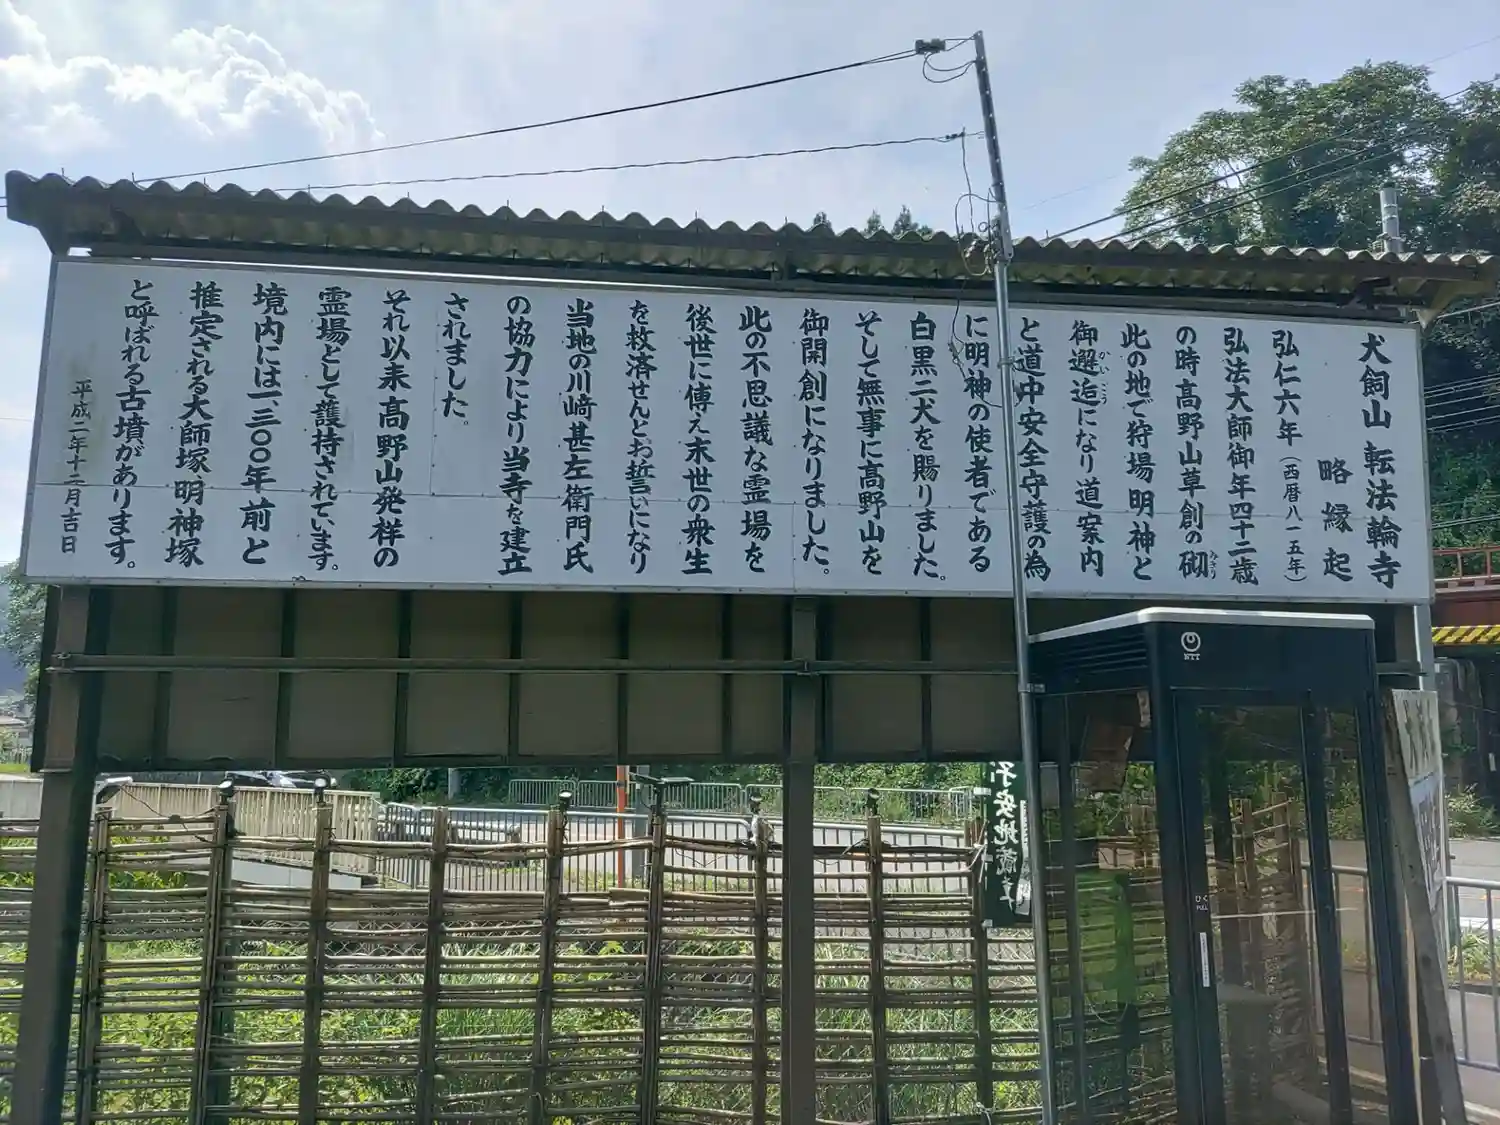 犬飼山 転法輪寺
略縁起
弘仁六年(西暦八一五年)
弘法大師御年四十二歳
の時高野山草創の砌
みぎり
此の地で狩場明神と
御邂逅になり道案内
かいこう
と道中安全守護の為
に明神の使者である
白黒二犬を賜りました。
そして無事に高野山を
御開創になりました。
此の不思議な霊場を
後世に傳え末世の衆生
を救済せんとお誓いになり
当地の川﨑甚左衛門氏
の協力により当寺を建立
されました。
それ以来高野山発祥の
霊場として護持されています。
境内には一、三〇〇年前と
推定される大師塚、明神塚
と呼ばれる古墳があります。
平成二年十二月吉日
NTT
ひく
PULL
子安地蔵